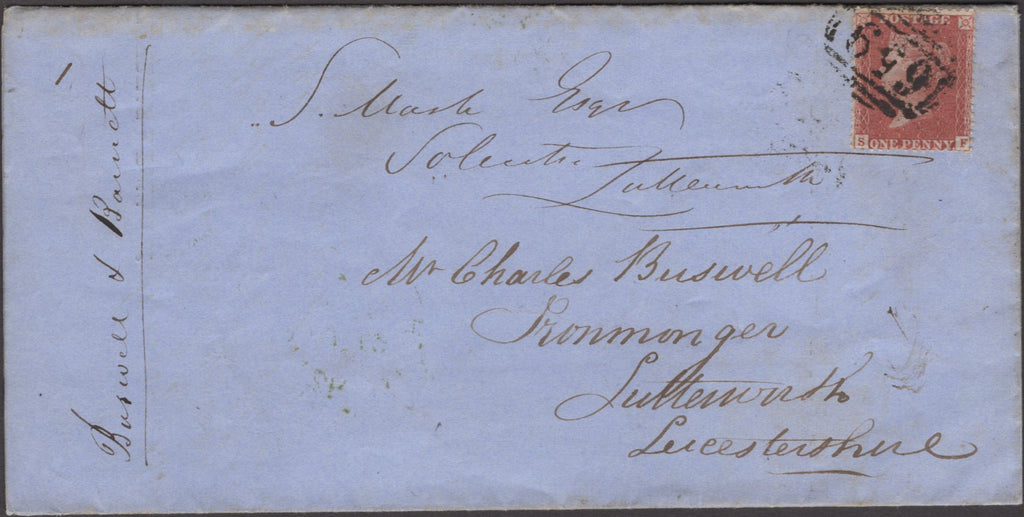 Buswell & Bannett
S. Mash Esqr
Solicitor
Lutterworth
Mr Charles Buswell
Ironmonger
Lutterworth
Leicestershire
POSTAGE
S ONE PENNY F